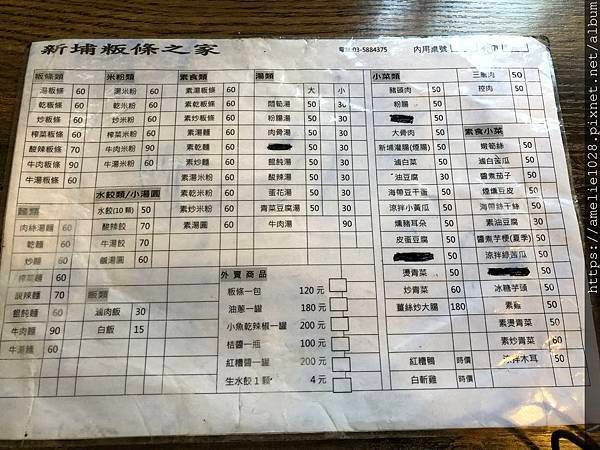 新埔粄條之家 電話:03-5884375 內用桌號
粄條類
湯粄條 60
乾粄條 60
炒粄條 60
榨菜粄條 60
酸辣粄條 70
牛肉粄條 90
牛湯粄條 60
麵類
肉絲湯麵 60
乾麵 60
炒麵 60
榨菜麵 60
酸辣麵 70
餛飩麵 60
牛肉麵 90
牛湯麵 60
米粉類
湯米粉 60
乾米粉 60
炒米粉 60
榨菜米粉 60
牛肉米粉 90
牛湯米粉 60
水餃類/小湯圓
水餃(10顆) 50
酸辣餃 70
牛湯餃 70
鹹湯圓 60
飯類
滷肉飯 30
白飯 15
素食類
素湯粄條 60
素乾粄條 60
素炒粄條 60
素湯麵 60
素乾麵 60
素炒麵 60
素湯米粉 60
素乾米粉 60
素炒米粉 60
素湯圓 60
湯類 大 小
悶筍湯 50 30
粉腸湯 50 30
肉骨湯 50 30
50 30
餛飩湯 50 30
酸辣湯 50 30
蛋花湯 50 30
青菜豆腐湯 50 30
牛肉湯 90
外賣商品
粄條一包 120元
油蔥一罐 180元
小魚乾辣椒一罐 200元
桔醬一瓶 100元
紅糟醬一罐 200元
生水餃1顆 4元
小菜類
豬頭肉 50
粉腸 50
大骨肉 50
新埔灌腸(煙腸) 50
滷白菜 50
油豆腐 30
海帶豆干蛋 50
涼拌小黃瓜 50
燻豬耳朵 50
皮蛋豆腐 50
燙青菜 50
炒青菜 60
薑絲炒大腸 180
紅糟鴨 時價
白斬雞 時價
三層肉 50
控肉 50
素食小菜
嫩筍絲 50
滷白苦瓜 50
醬煮茄子 50
煙燻豆皮 50
海帶絲干絲 50
素油豆腐 30
醬煮芋梗(夏季) 50
涼拌綠苦瓜 50
冰糖芋頭 50
50
素燙青菜 50
素炒青菜 60
涼拌木耳 50
https://amelie1028.pixnet.net/album